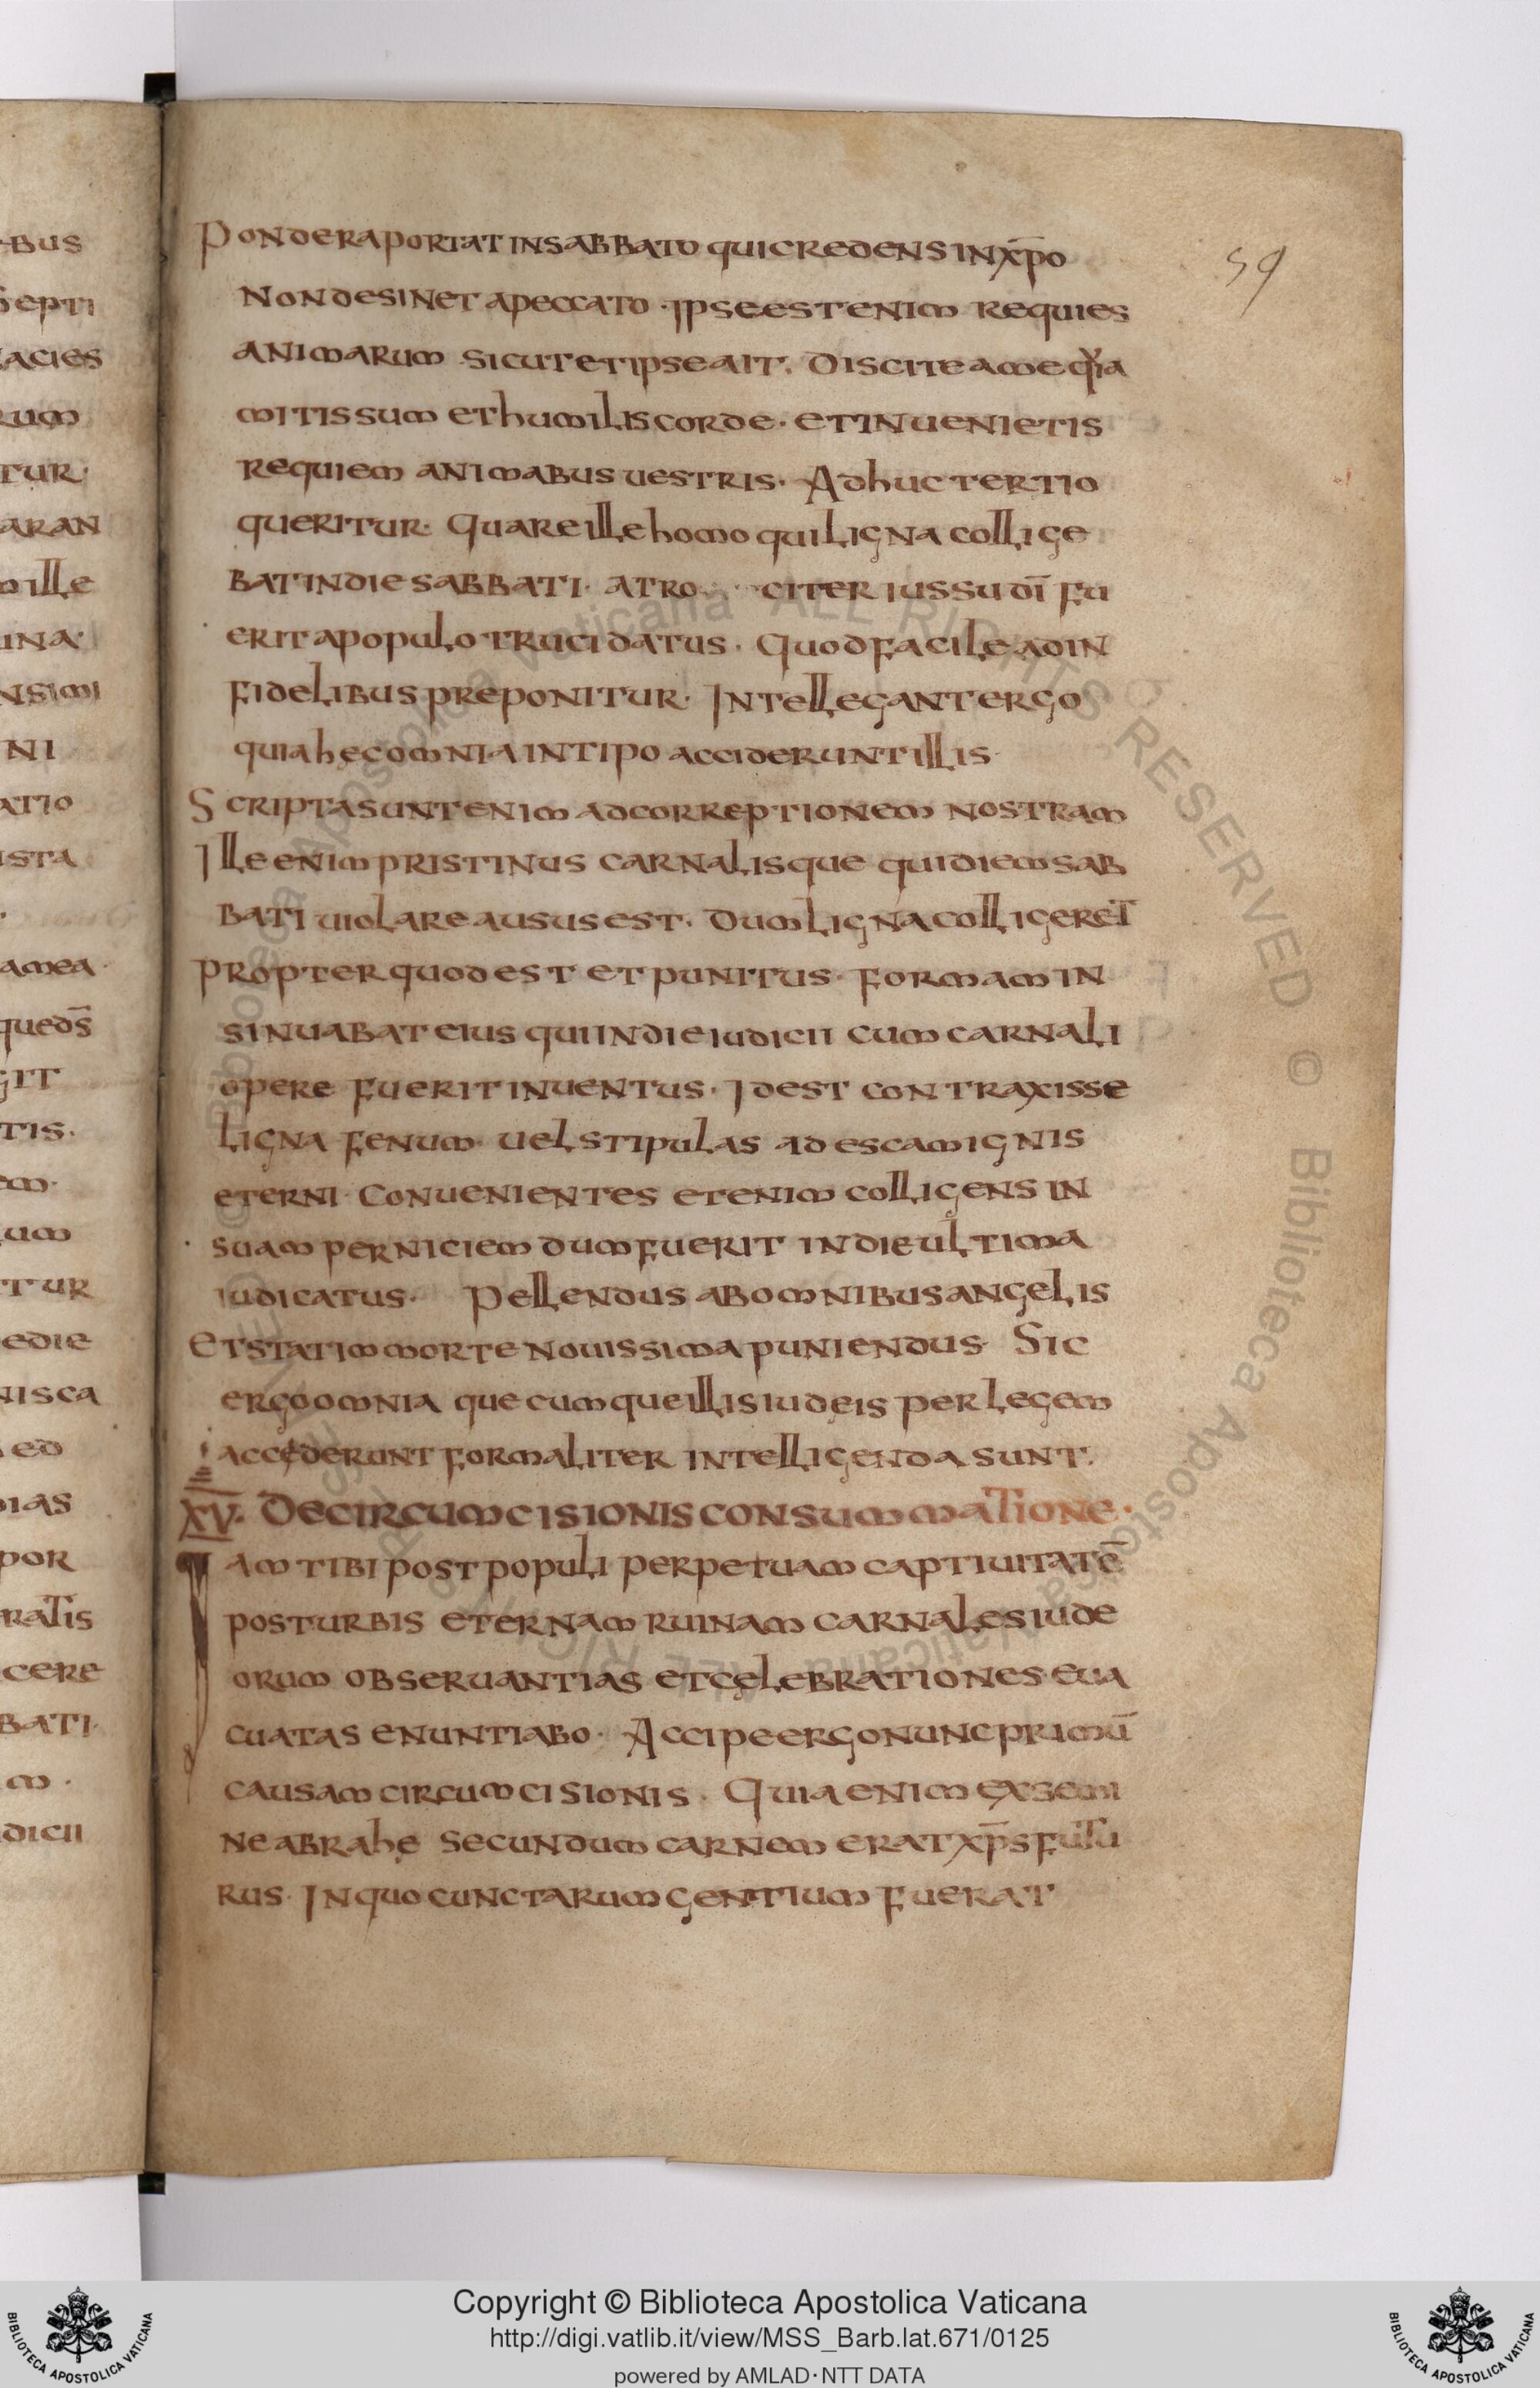 BUS
SEPTI
ACIES
RUM
TUR·
ARAN
MILLE
INA·
NSIMI
NI
ATIO
ISTA
AMEA·
QUEDS̄
GIT
TIS·
EM·
UM
TUR
EDIE
NISCA
ED
DIAS
POR
RATIS
CERE
BATI·
M·
DICII
59
PONDERA PORTAT IN SABBATO QUI CREDENS IN XP̄O
NON DESINET A PECCATO · IPSE EST ENIM REQUIES
ANIMARUM SICUT ET IPSE AIT· DISCITE A ME QIA
MITIS SUM ET HUMILIS CORDE· ET INUENIETIS
REQUIEM ANIMABUS UESTRIS· ADHUC TERTIO
QUERITUR· QUARE ILLE HOMO QUI LIGNA COLLIGE
BAT IN DIE SABBATI· ATRO CITER IUSSU DĪ FU
ERIT A POPULO TRUCIDATUS· QUOD FACILE AD IN
FIDELIBUS PREPONITUR· INTELLEGANT ERGO
QUIA HĘC OMNIA IN TIPO ACCIDERUNT ILLIS·
SCRIPTA SUNT ENIM AD CORREPTIONEM NOSTRAM
ILLE ENIM PRISTINUS CARNALISQUE QUI DIEM SAB
BATI UIOLARE AUSUS EST· DUM LIGNA COLLIGERET
PROPTER QUOD EST ET PUNITUS· FORMAM IN
SINUABAT EIUS QUI IN DIE IUDICII CUM CARNALI
OPERE FUERIT INUENTUS· IDEST CONTRAXISSE
LIGNA FENUM· UEL STIPULAS AD ESCAM IGNIS
ETERNI· CONUENIENTES ETENIM COLLIGENS IN
SUAM PERNICIEM DUM FUERIT IN DIE ULTIMA
IUDICATUS· PELLENDUS AB OMNIBUS ANGELIS
ET STATIM MORTE NOUISSIMA PUNIENDUS· SIC
ERGO OMNIA QUECUMQUE ILLIS IUDEIS PER LEGEM
ACCEDERUNT FORMALITER INTELLIGENDA SUNT·
XV· DE CIRCUMCISIONIS CONSUMMATIONE·
IAM TIBI POST POPULI PERPETUAM CAPTIUITATĒ
POST URBIS ETERNAM RUINAM CARNALES IUDE
ORUM OBSERUANTIAS ET CELEBRATIONES EUA
CUATAS ENUNTIABO· ACCIPE ERGO NUNC PRIMŪ
CAUSAM CIRCUMCISIONIS· QUIA ENIM EX SEMI
NE ABRAHĘ SECUNDUM CARNEM ERAT XP̄S FUTU
RUS· IN QUO CUNCTARUM GENTIUM FUERAT
© Biblioteca Apostolica Vaticana ALL RIGHTS RESERVED
Copyright © Biblioteca Apostolica Vaticana
http://digi.vatlib.it/view/MSS_Barb.lat.671/0125
powered by AMLAD·NTT DATA
BIBLIOTECA APOSTOLICA VATICANA
BIBLIOTECA APOSTOLICA VATICANA